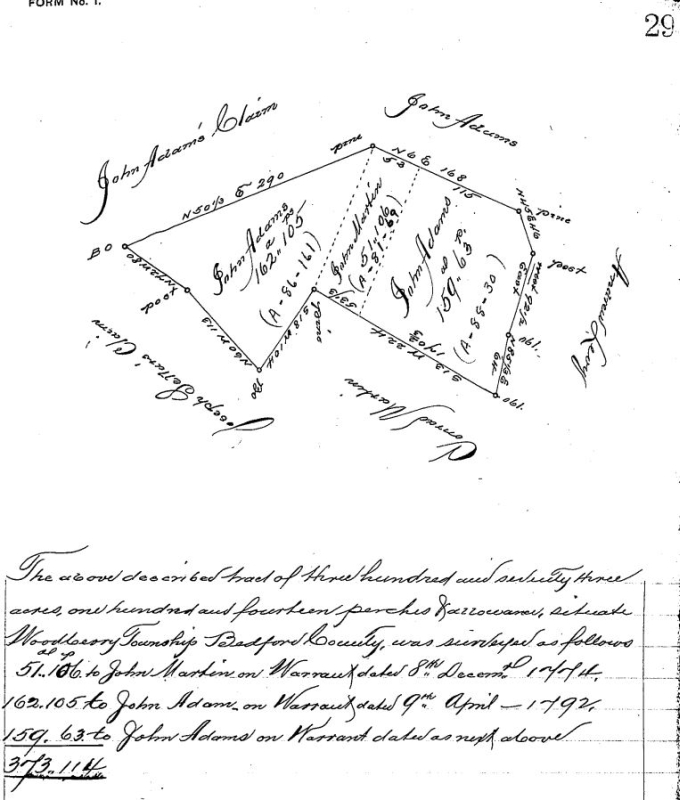 FORM No. 1.
29
John Adam's Claim
John Adams
pine
N 50 1/2 E 290
N 6 E 168
53
115
pine
BO
John Adams
a ps
162..105
(A-86-161)
John Martin
51..106
(A-81-69)
John Adams
as p.
159..63
(A-88-30)
post
post
N 60 W 113
BO
S 18 W 104
pine
S 13 W 224
Conrad Martin
Joseph Sellars Claim
The above described tract of three hundred and seventy three
acres, one hundred and fourteen perches & allowance, situate
Woodberry Township Bedford County, was surveyed as follows
as ps
51.106 to John Martin on Warrant dated 8th Decemr 1774.
162.105 to John Adam on Warrant dated 9th April — 1792.
159. 63 to John Adams on Warrant dated as next above
373.114